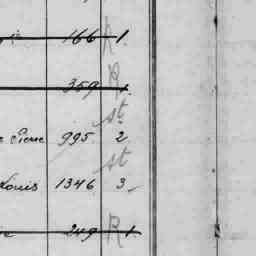 166 R 1.
359 R 1.
st
Pierre 995. 2
st
Louis 1346 3
249 R 1.